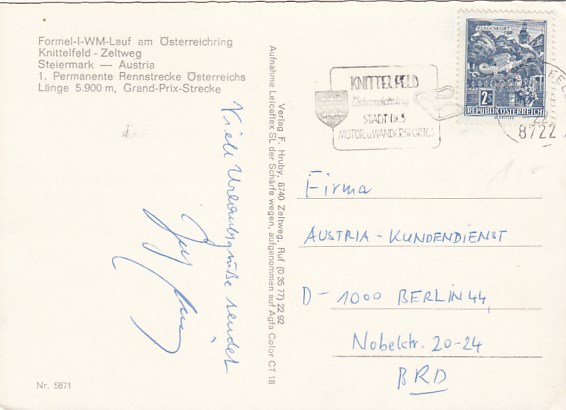 Formel-I-WM-Lauf am Österreichring
Knittelfeld - Zeltweg
Steiermark — Austria
1. Permanente Rennstrecke Österreichs
Länge 5.900 m, Grand-Prix-Strecke
Viele Urlaubsgrüße sendet
Nr. 5871
Verlag F. Hruby, 8740 Zeltweg, Ruf (0 35 77) 22 92
Aufnahme Leicaflex SL der Schärfe wegen, aufgenommen auf Agfa Color CT 18
KNITTELFELD
STADT DES
MOTOR u WANDERSPORTES
KLAGENFURT
2S
REPUBLIK ÖSTERREICH
8722
Firma
AUSTRIA - KUNDENDIENST
D - 1000 BERLIN 44
Nobelstr. 20-24
BRD